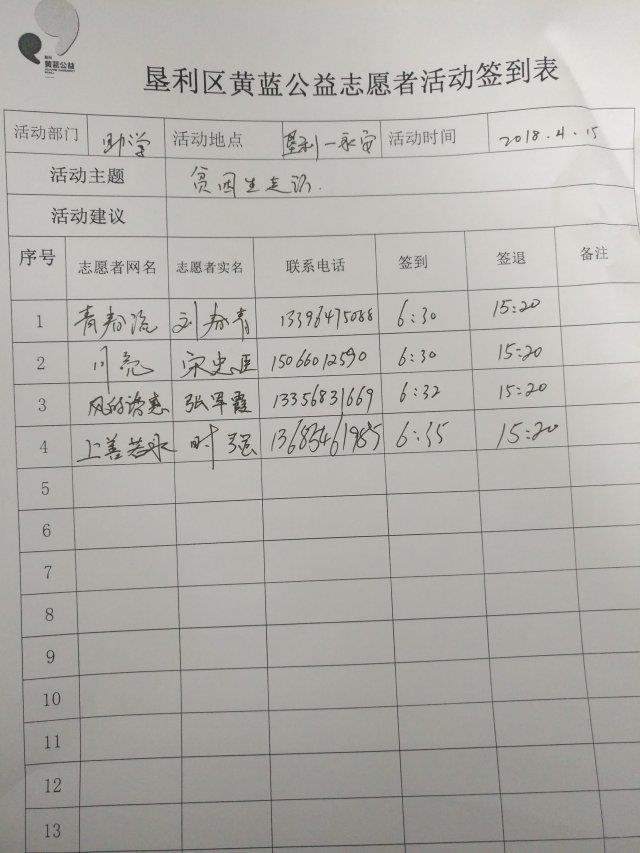 黄蓝公益
垦利区黄蓝公益志愿者活动签到表
活动部门 助学 活动地点 垦利一永安 活动时间 2018.4.15
活动主题 贫困生走访.
活动建议
序号 志愿者网名 志愿者实名 联系电话 签到 签退 备注
1 青春流 刘春青 13396475088 6:30 15:20
2 川亮 宋忠臣 15066012590 6:30 15:20
3 风的诱惑 张军霞 13356831669 6:32 15:20
4 上善若水 时强 13683461985 6:35 15:20
5
6
7
8
9
10
11
12
13